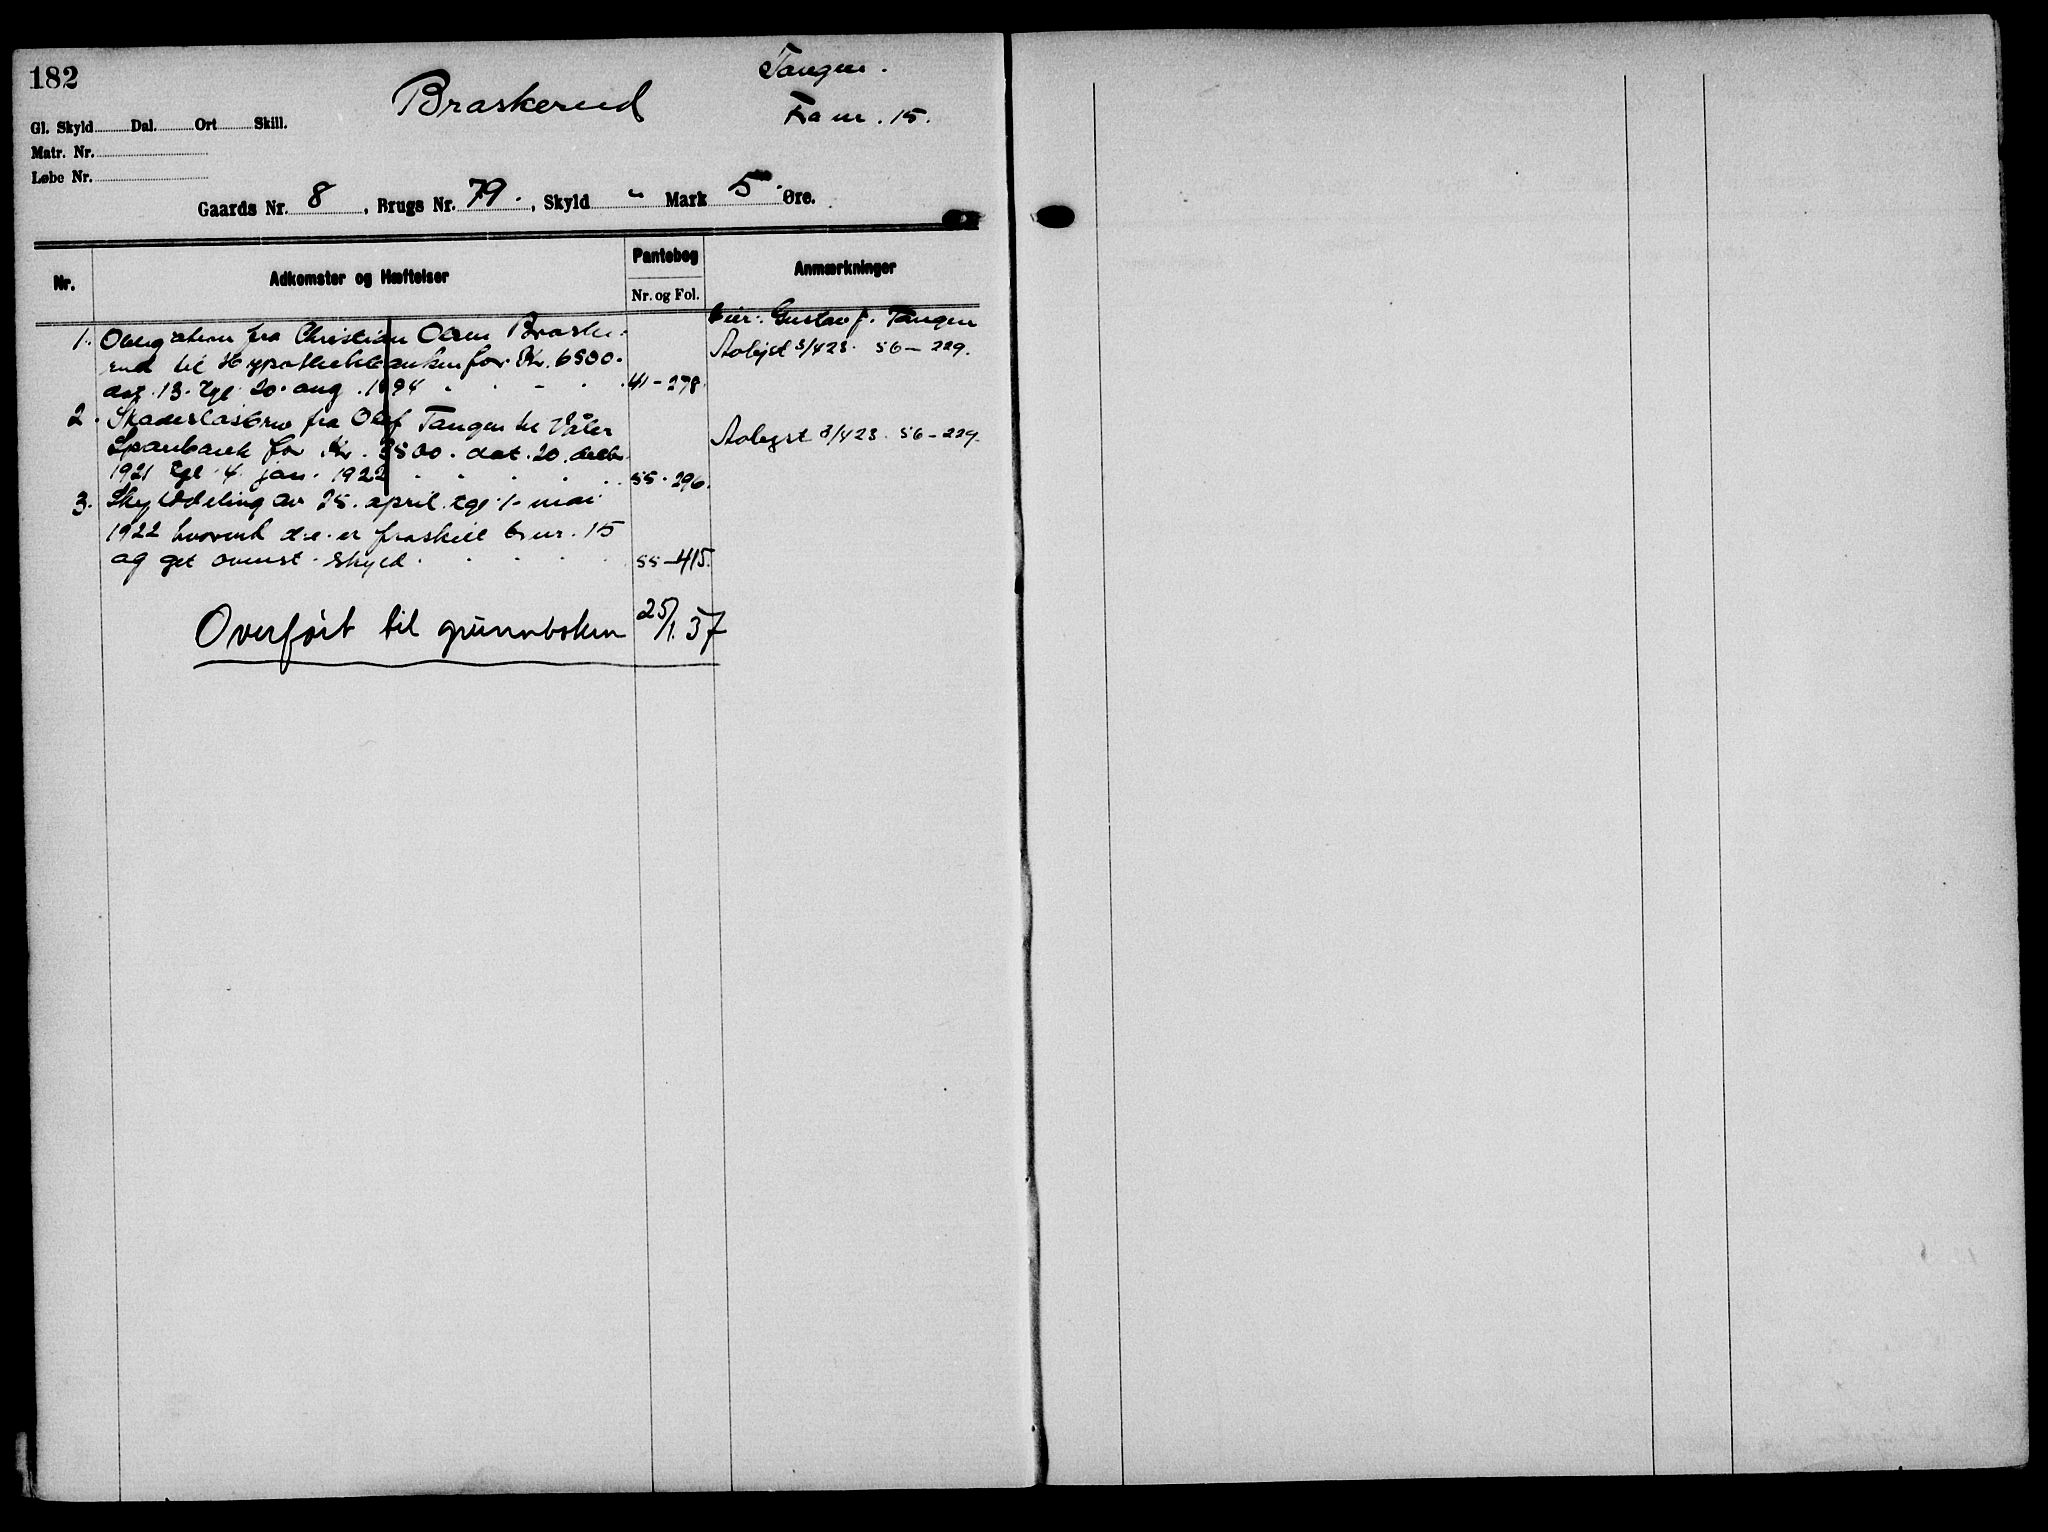 182
Braskerud
Tangen.
Fra nr. 15.
Gl. Skyld Dal. Ort Skill.
Matr. Nr.
Løbe Nr.
Gaards Nr. 8, Brugs Nr. 79., Skyld " Mark 5 Øre.
Nr. Adkomster og Hæftelser Pantebog Anmærkninger
Nr. og Fol.
Eier: Gustav J. Tangen
1. Obligation fra Christian Olsen Braske-
rud til Hypothekbanken for Kr. 6500.
Avlyst 3/4 23. 56-229.
dat. 13. tgl. 20. aug. 1894 41-278.
2. Skadesløsbrev fra Olaf Tangen til Våler
Sparebank for Kr. 3500. dat. 20. decbr.
Avlyst 3/4 23. 56-229.
1921 tgl. 4. jan. 1922 55-296.
3. Skylddeling av 25. april tgl. 1. mai
1922 hvorved d.e. er fraskilt bnr. 15
og git ovenst. skyld. 55-415.
Overført til grunnboken 25/1.37